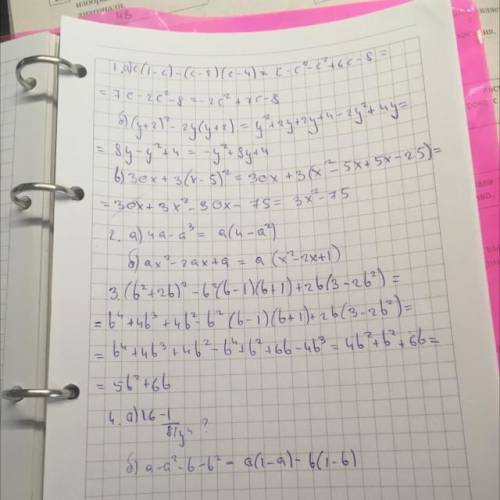 1. а) c(1-c)-(c-8)(c-4) = c-c²-c²+6c-8=
= 7c-2c²-8=-2c²+7c-8
б) (y+2)²-2y(y+2)=y²+2y+2y+4-2y²+4y=
= 8y-y²+4=-y²+8y+4
в) 30x+3(x-5)²=30x+3(x²-5x+5x-25)=
= 30x+3x²-30x-75= 3x²-75
2. а) 4a-a³= a(4-a²)
б) ax²-2ax+a= a(x²-2x+1)
3. (b²+2b)²-b²(b-1)(b+1)+2b(3-2b²)=
= b⁴+4b³+4b²-b²(b-1)(b+1)+2b(3-2b²)=
= b⁴+4b³+4b²-b⁴+b²+6b-4b³=4b²+b²+6b=
= 5b²+6b
4. а) 16-1/81y⁴ ?
б) a-a²-b-b² = a(1-a)-b(1-b)